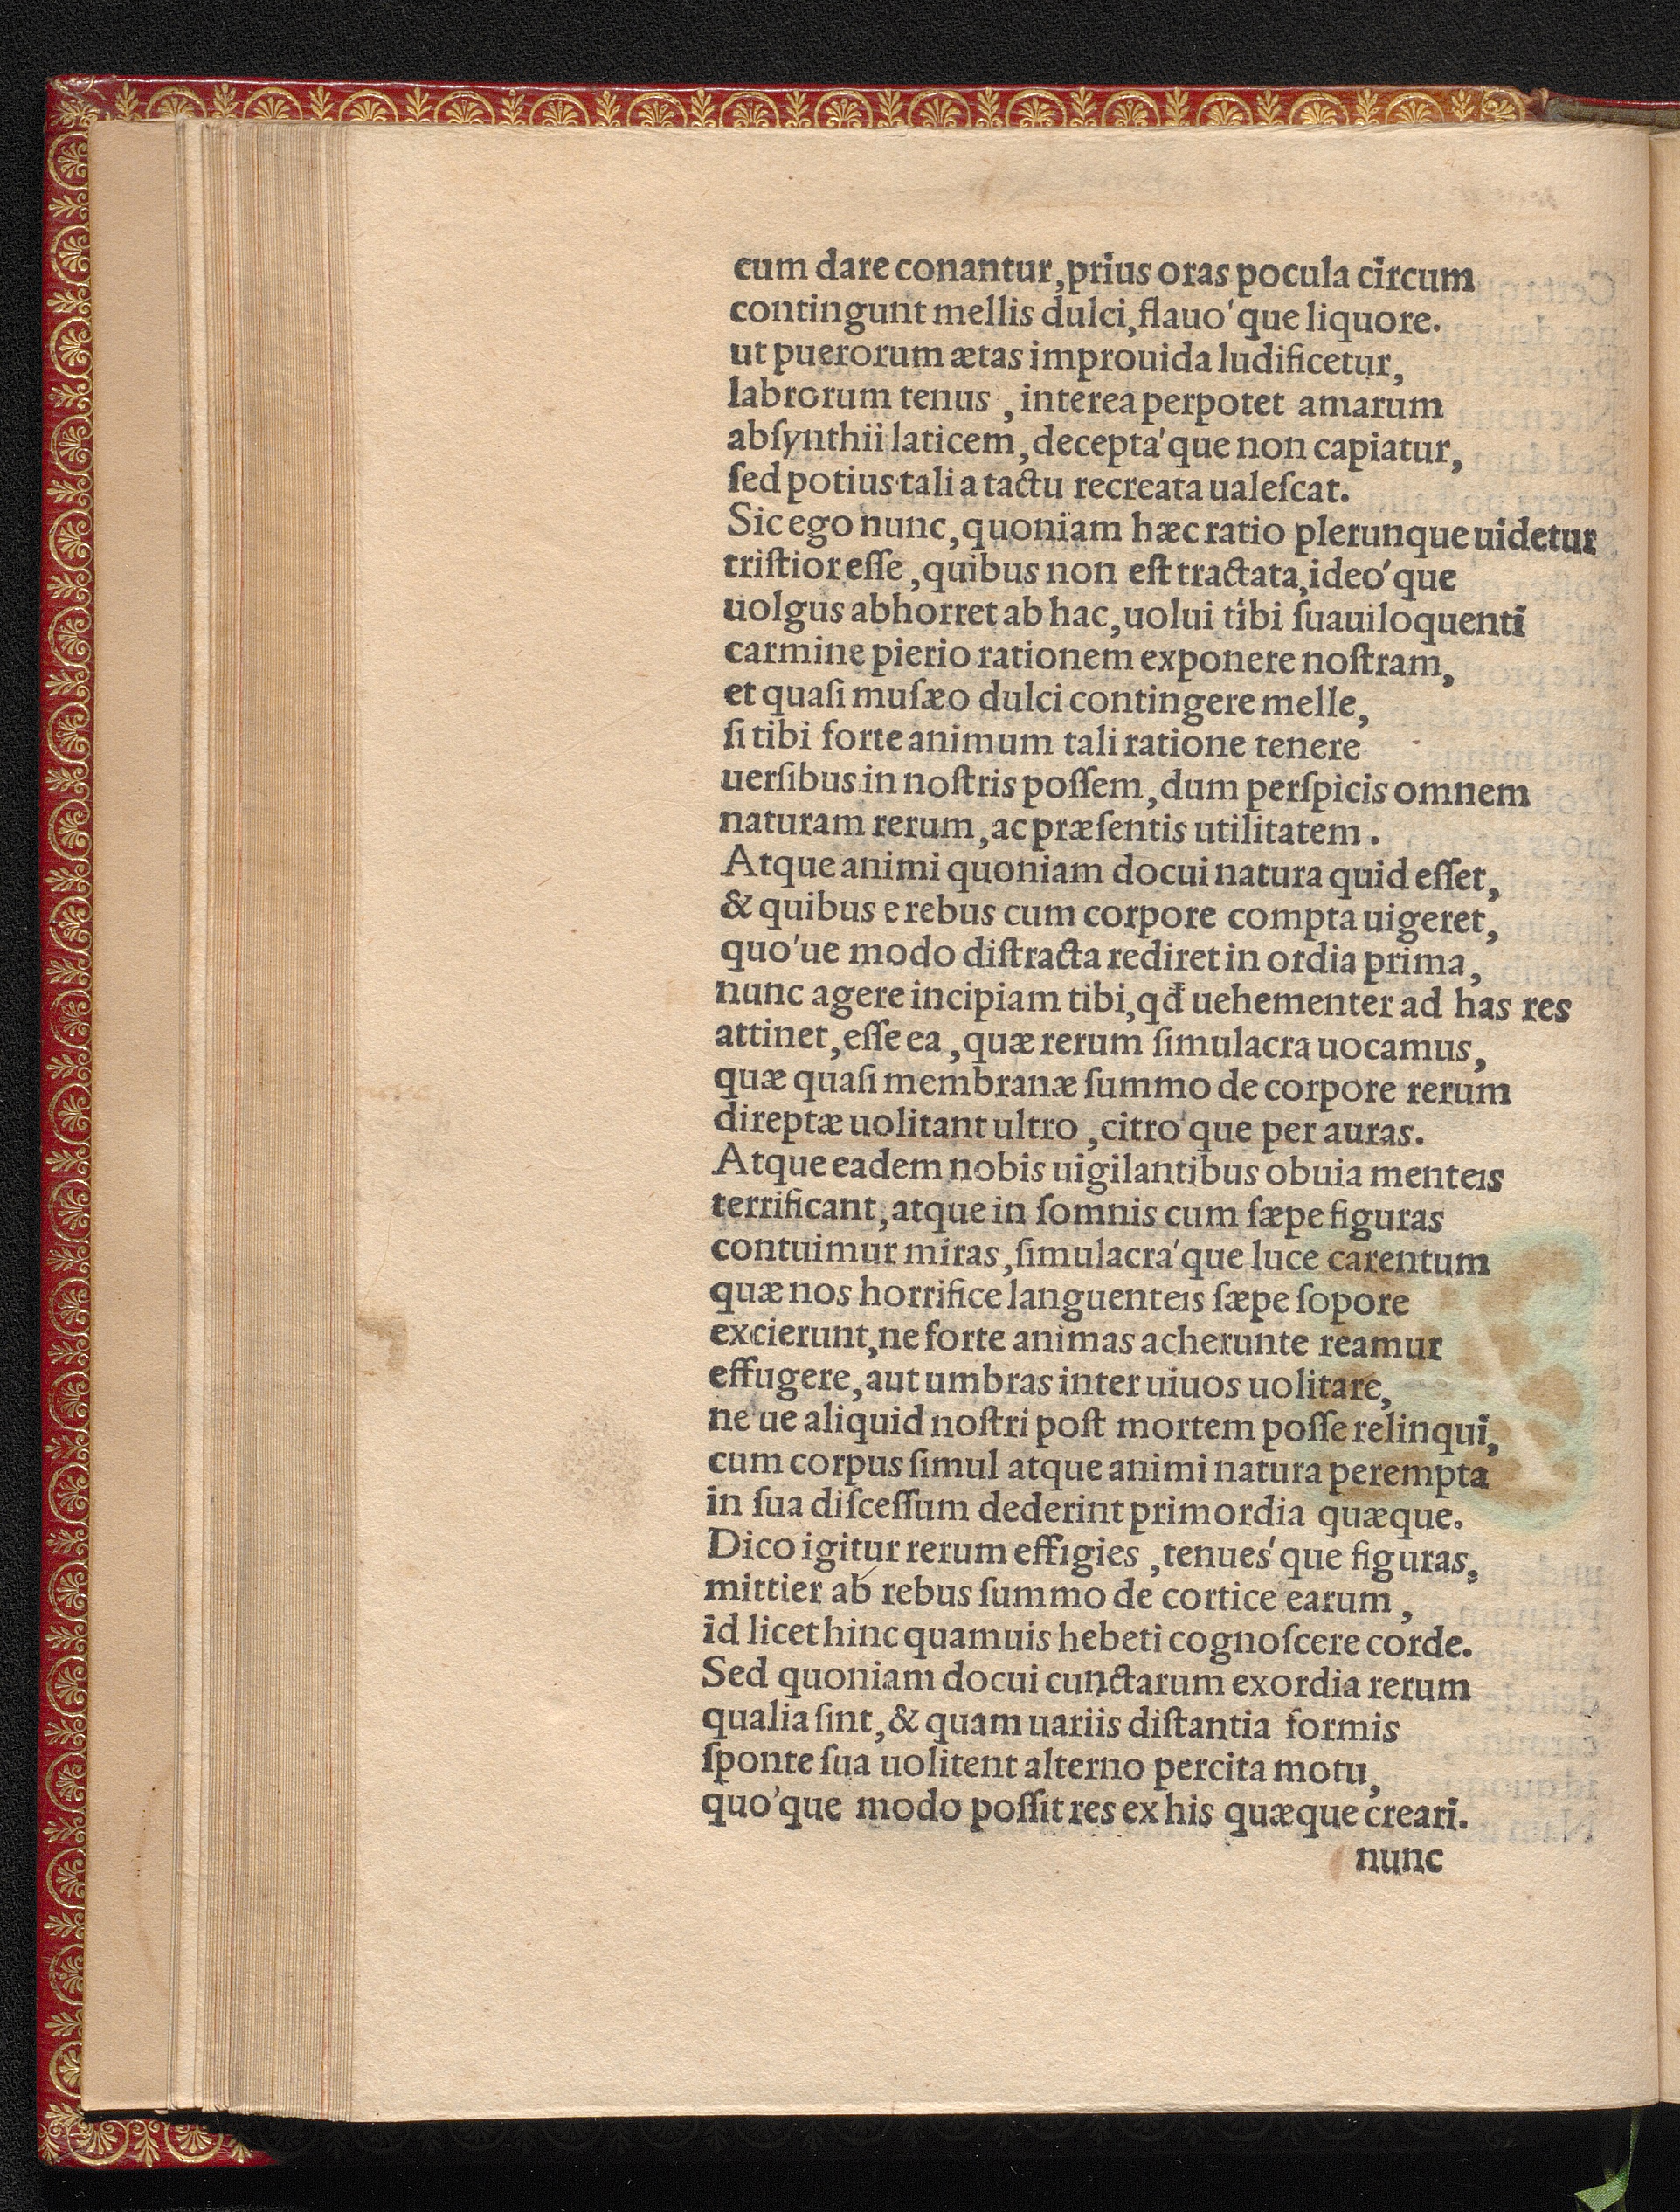 cum dare conantur,prius oras pocula circum
contingunt mellis dulci,flauo'que liquore.
ut puerorum ætas improuida ludificetur,
labrorum tenus , interea perpotet amarum
abſynthii laticem,decepta'que non capiatur,
ſed potius tali a tactu recreata ualeſcat.
Sic ego nunc,quoniam hæc ratio plerunque uidetur
triſtior eſſe ,quibus non eſt tractata,ideo'que
uolgus abhorret ab hac,uolui tibi ſuauiloquenti
carmine pierio rationem exponere noſtram,
et quaſi muſæo dulci contingere melle,
ſi tibi forte animum tali ratione tenere
uerſibus in noſtris poſſem,dum perſpicis omnem
naturam rerum,ac præſentis utilitatem.
Atque animi quoniam docui natura quid eſſet,
& quibus e rebus cum corpore compta uigeret,
quo'ue modo diſtracta rediret in ordia prima,
nunc agere incipiam tibi,qđ uehementer ad has res
attinet,eſſe ea ,quæ rerum ſimulacra uocamus,
quæ quaſi membranæ ſummo de corpore rerum
direptæ uolitant ultro ,citro'que per auras.
Atque eadem nobis uigilantibus obuia menteis
terrificant,atque in ſomnis cum ſæpe figuras
contuimur miras,ſimulacra'que luce carentum
quæ nos horrifice languenteis ſæpe ſopore
excierunt,ne forte animas acherunte reamur
effugere,aut umbras inter uiuos uolitare,
ne'ue aliquid noſtri poſt mortem poſſe relinqui,
cum corpus ſimul atque animi natura perempta
in ſua diſceſſum dederint primordia quæque.
Dico igitur rerum effigies ,tenues'que figuras,
mittier ab rebus ſummo de cortice earum ,
id licet hinc quamuis hebeti cognoſcere corde.
Sed quoniam docui cunctarum exordia rerum
qualia ſint,& quam uariis diſtantia formis
ſponte ſua uolitent alterno percita motu,
quo'que modo poſſit res ex his quæque creari.
nunc